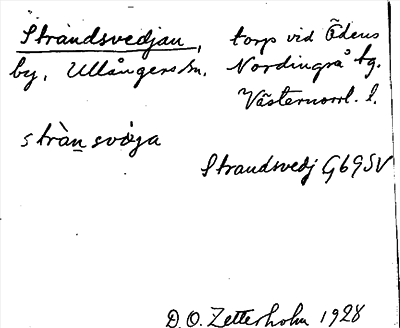 Strandsvedjan, torp vid Ödens
by, Ullångers sn. Nordingrå tg.
Västernorrl. l.
stràn svòja
Strandsvedj G69SV
D.O. Zetterholm 1928